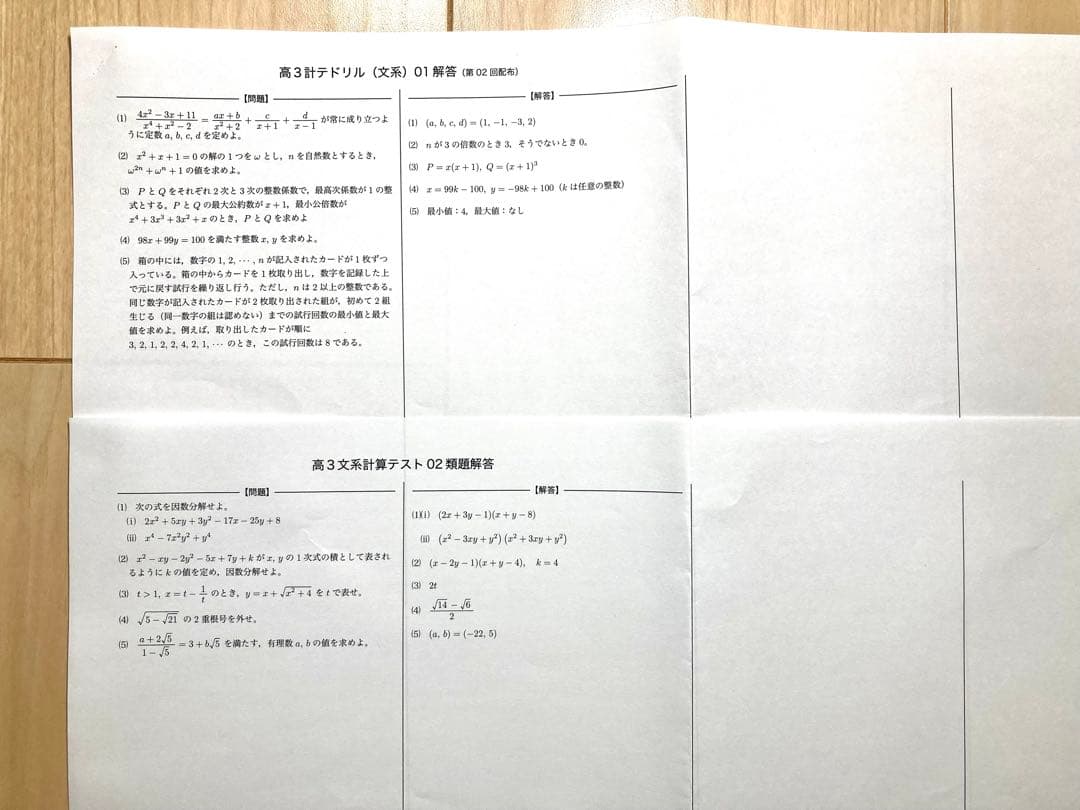 高３計テドリル（文系）01 解答（第 02 回配布）
【問題】
(1) (4x² − 3x + 11)/(x⁴ + x² − 2) = (ax + b)/(x² + 2) + c/(x + 1) + d/(x − 1) が常に成り立つよ
うに定数 a, b, c, d を定めよ。
(2) x² + x + 1 = 0 の解の１つを ω とし，n を自然数とするとき，
ω²ⁿ + ωⁿ + 1 の値を求めよ。
(3) P と Q をそれぞれ２次と３次の整数係数で，最高次係数が１の整
式とする。P と Q の最大公約数が x + 1，最小公倍数が
x⁴ + 3x³ + 3x² + x のとき，P と Q を求めよ
(4) 98x + 99y = 100 を満たす整数 x, y を求めよ。
(5) 箱の中には，数字の 1, 2, ⋯ , n が記入されたカードが１枚ずつ
入っている。箱の中からカードを１枚取り出し，数字を記録した上
で元に戻す試行を繰り返し行う。ただし，n は２以上の整数である。
同じ数字が記入されたカードが２枚取り出された組が，初めて２組
生じる（同一数字の組は認めない）までの試行回数の最小値と最大
値を求めよ。例えば，取り出したカードが順に
3, 2, 1, 2, 2, 4, 2, 1, ⋯ のとき，この試行回数は８である。
【解答】
(1) (a, b, c, d) = (1, −1, −3, 2)
(2) n が３の倍数のとき 3，そうでないとき 0。
(3) P = x(x + 1), Q = (x + 1)³
(4) x = 99k − 100, y = −98k + 100（k は任意の整数）
(5) 最小値：4，最大値：なし
高３文系計算テスト 02 類題解答
【問題】
(1) 次の式を因数分解せよ。
(i) 2x² + 5xy + 3y² − 17x − 25y + 8
(ii) x⁴ − 7x²y² + y⁴
(2) x² − xy − 2y² − 5x + 7y + k が x, y の１次式の積として表され
るように k の値を定め，因数分解せよ。
(3) t > 1, x = t − 1/t のとき，y = x + √(x² + 4) を t で表せ。
(4) √(5 − √21) の２重根号を外せ。
(5) (a + 2√5)/(1 − √5) = 3 + b√5 を満たす，有理数 a, b の値を求めよ。
【解答】
(1)(i) (2x + 3y − 1)(x + y − 8)
(ii) (x² − 3xy + y²)(x² + 3xy + y²)
(2) (x − 2y − 1)(x + y − 4), k = 4
(3) 2t
(4) (√14 − √6)/2
(5) (a, b) = (−22, 5)